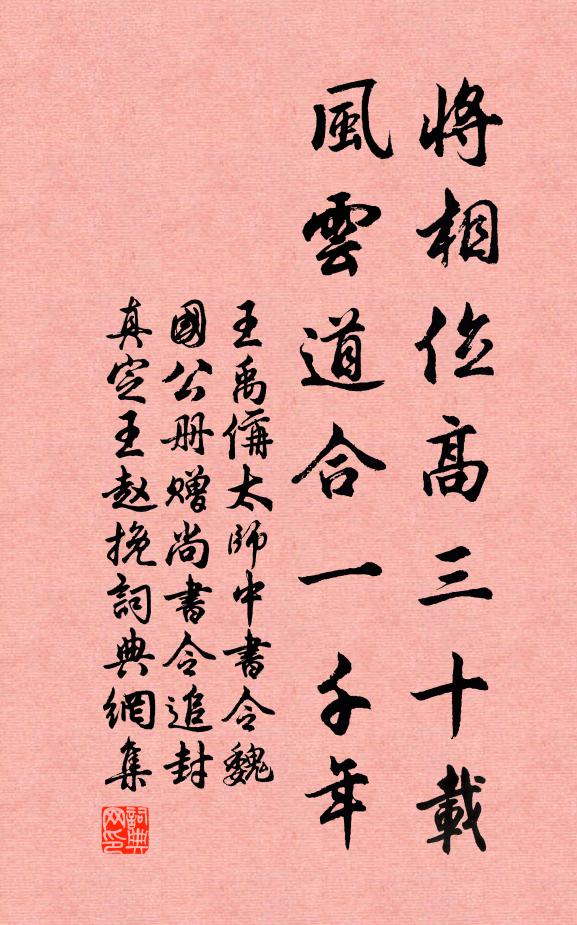 將相位高三十載
風雲道合一千年
王禹偁太師中書令魏
國公册贈尚書令追封
真定王趙挽詞典網集
詞典
网印